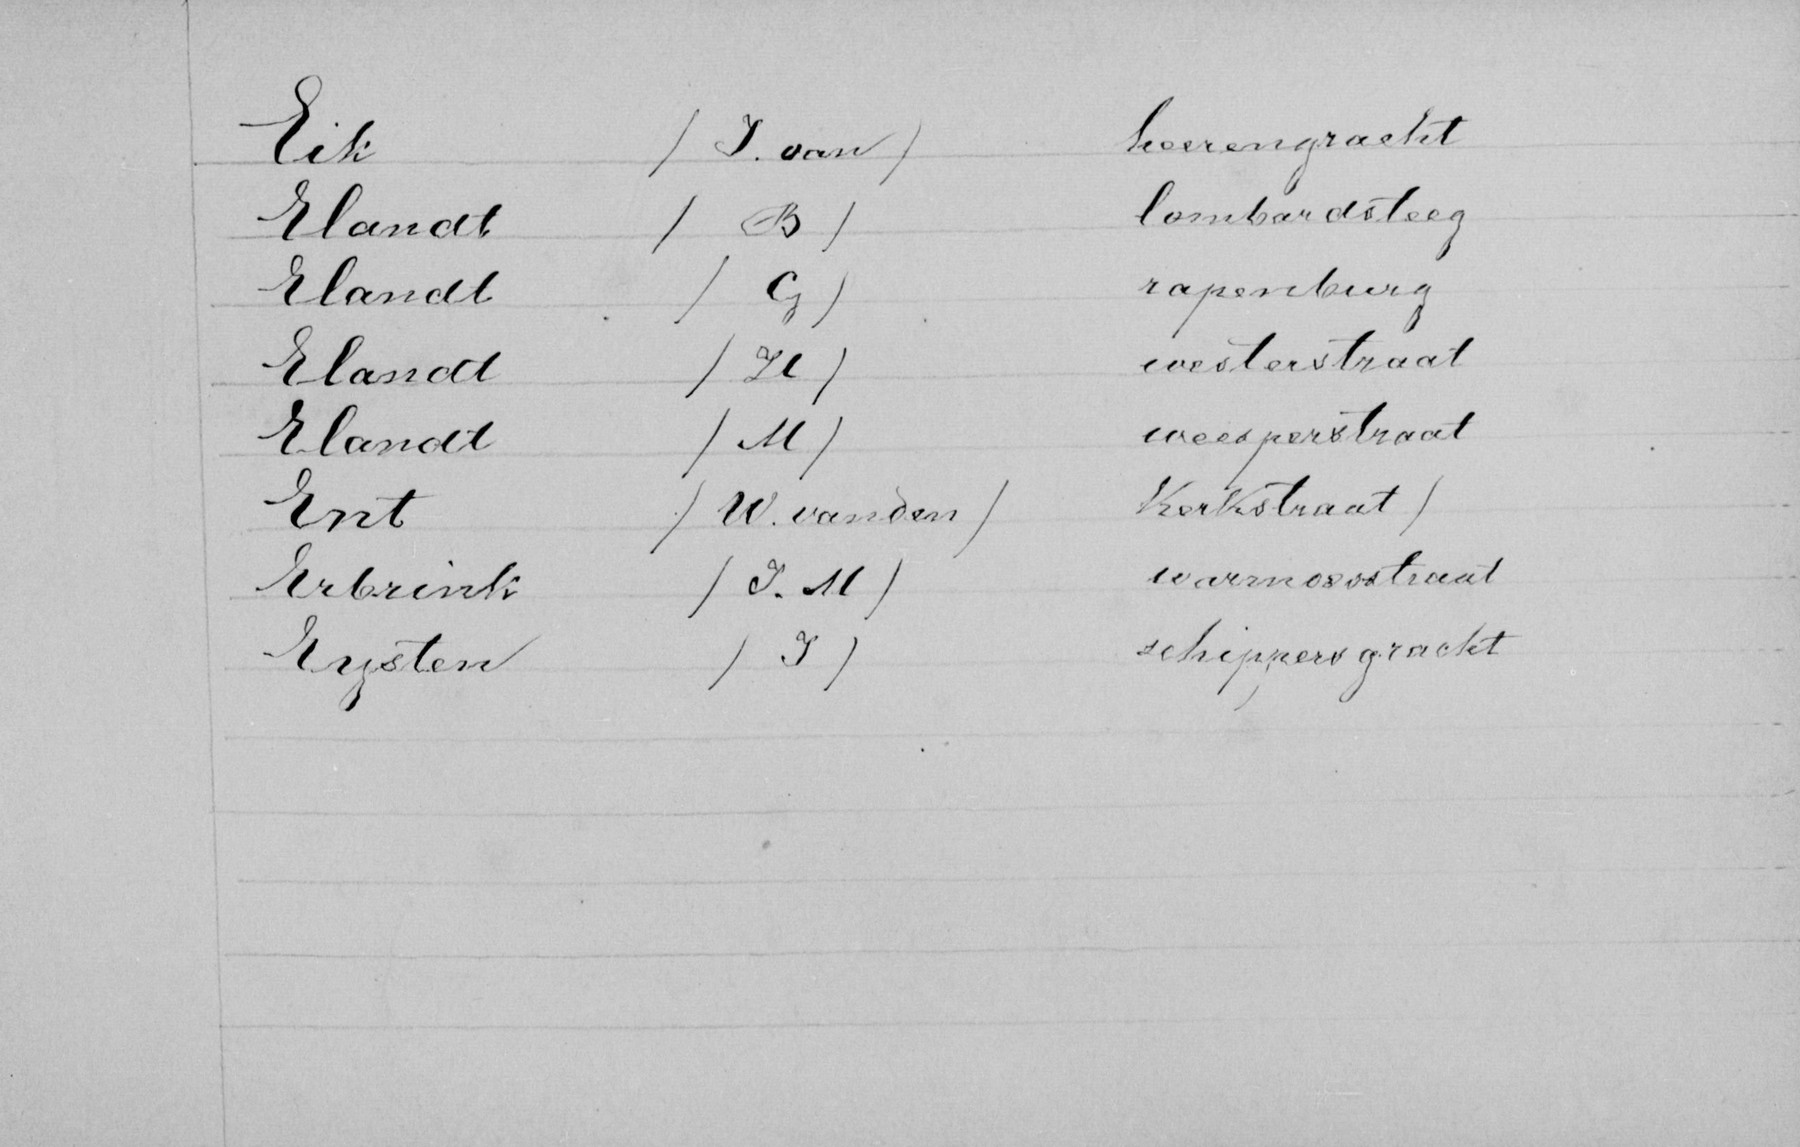 Eik / J. van / heerengracht
Elandt / B / lombardsteeg
Elandt / G / rapenburg
Elandt / H / westerstraat
Elandt / M / weesperstraat
Ent / W. vanden / Kerkstraat /
Erbrink / J. M / warmoesstraat
Eysten / J / schippersgracht